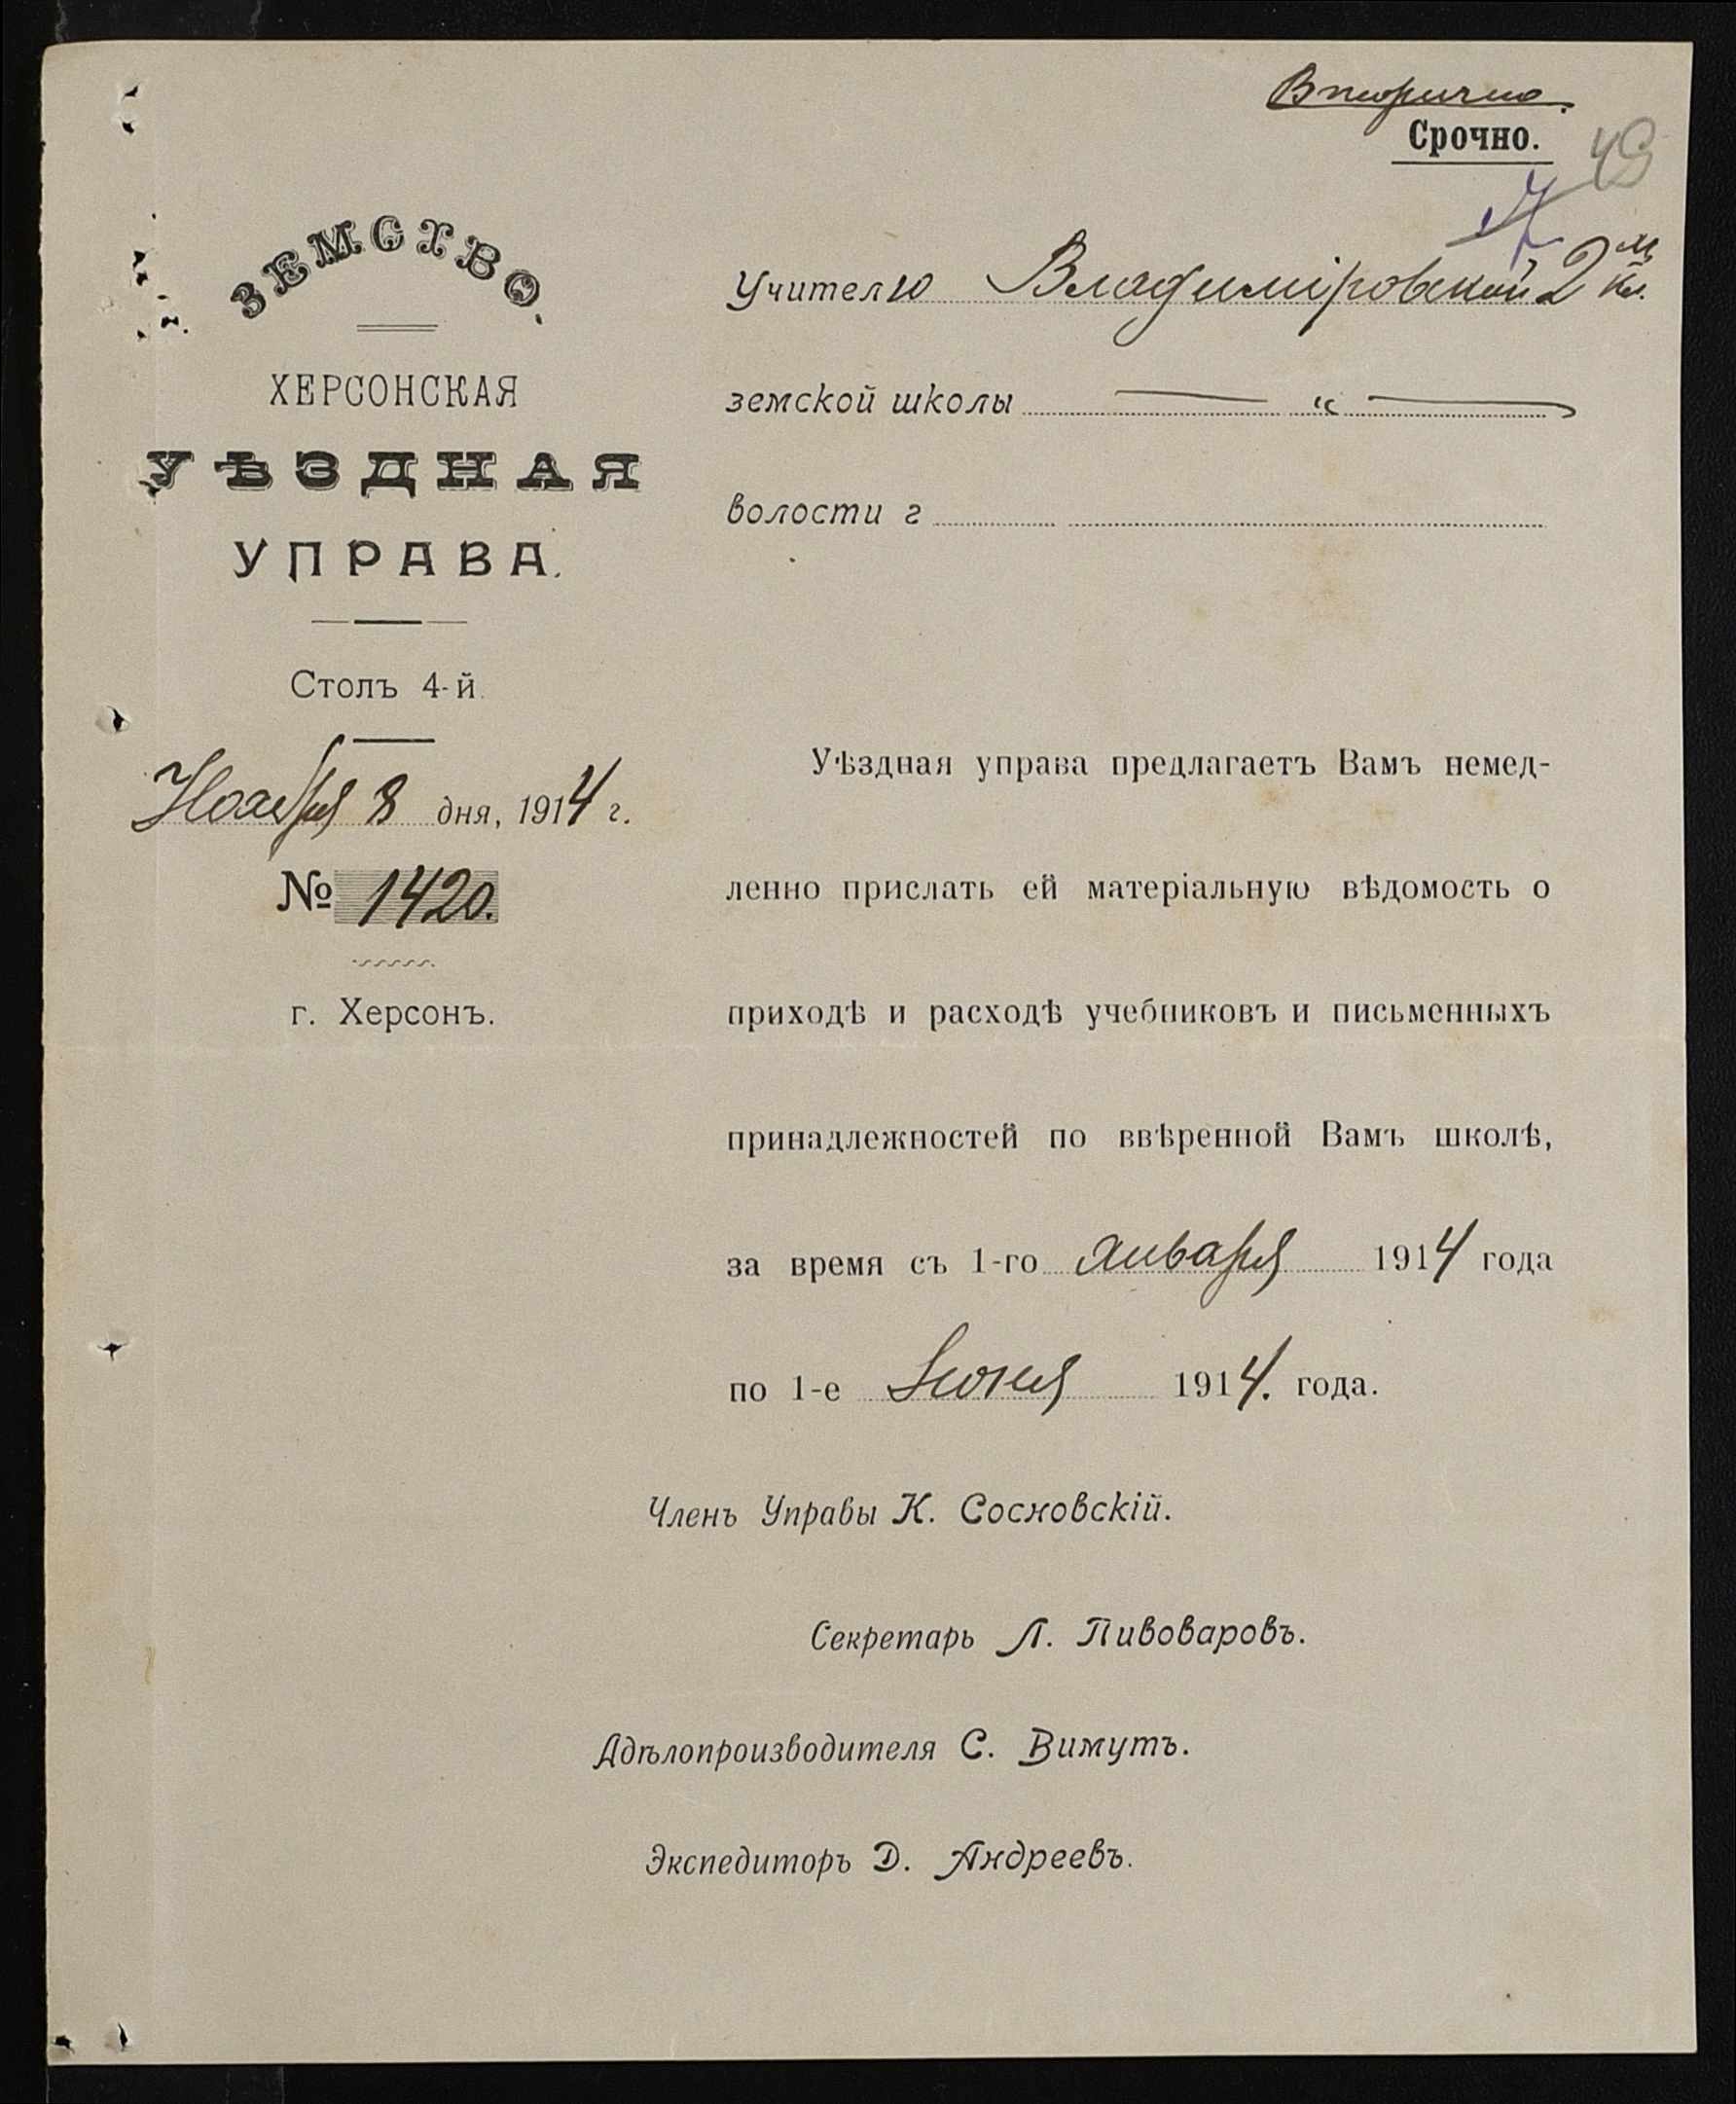 Вторично.
Срочно.
49
ЗЕМСТВО.
ХЕРСОНСКАЯ
УѢЗДНАЯ
УПРАВА.
Столъ 4-й.
Ноября 8 дня, 1914 г.
№ 1420.
г. Херсонъ.
Учителю Владиміровской 2 кл.
земской школы — " —
волости г
Уѣздная управа предлагаетъ Вамъ немед-
ленно прислать ей матеріальную вѣдомость о
приходѣ и расходѣ учебниковъ и письменныхъ
принадлежностей по ввѣренной Вамъ школѣ,
за время съ 1-го января 1914 года
по 1-е Іюня 1914. года.
Членъ Управы К. Сосновскій.
Секретарь Л. Пивоваровъ.
Адѣлопроизводителя С. Вимутъ.
Экспедиторъ Д. Андреевъ.